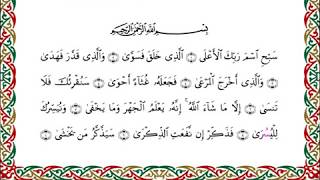 بِسْمِ ٱللَّهِ ٱلرَّحْمَٰنِ ٱلرَّحِيمِ
سَبِّحِ ٱسْمَ رَبِّكَ ٱلْأَعْلَى ۝ ٱلَّذِى خَلَقَ فَسَوَّىٰ ۝ وَٱلَّذِى قَدَّرَ فَهَدَىٰ
۝ وَٱلَّذِىٓ أَخْرَجَ ٱلْمَرْعَىٰ ۝ فَجَعَلَهُۥ غُثَآءً أَحْوَىٰ ۝ سَنُقْرِئُكَ فَلَا
تَنسَىٰٓ ۝ إِلَّا مَا شَآءَ ٱللَّهُ ۚ إِنَّهُۥ يَعْلَمُ ٱلْجَهْرَ وَمَا يَخْفَىٰ ۝ وَنُيَسِّرُكَ
لِلْيُسْرَىٰ ۝ فَذَكِّرْ إِن نَّفَعَتِ ٱلذِّكْرَىٰ ۝ سَيَذَّكَّرُ مَن يَخْشَىٰ ۝